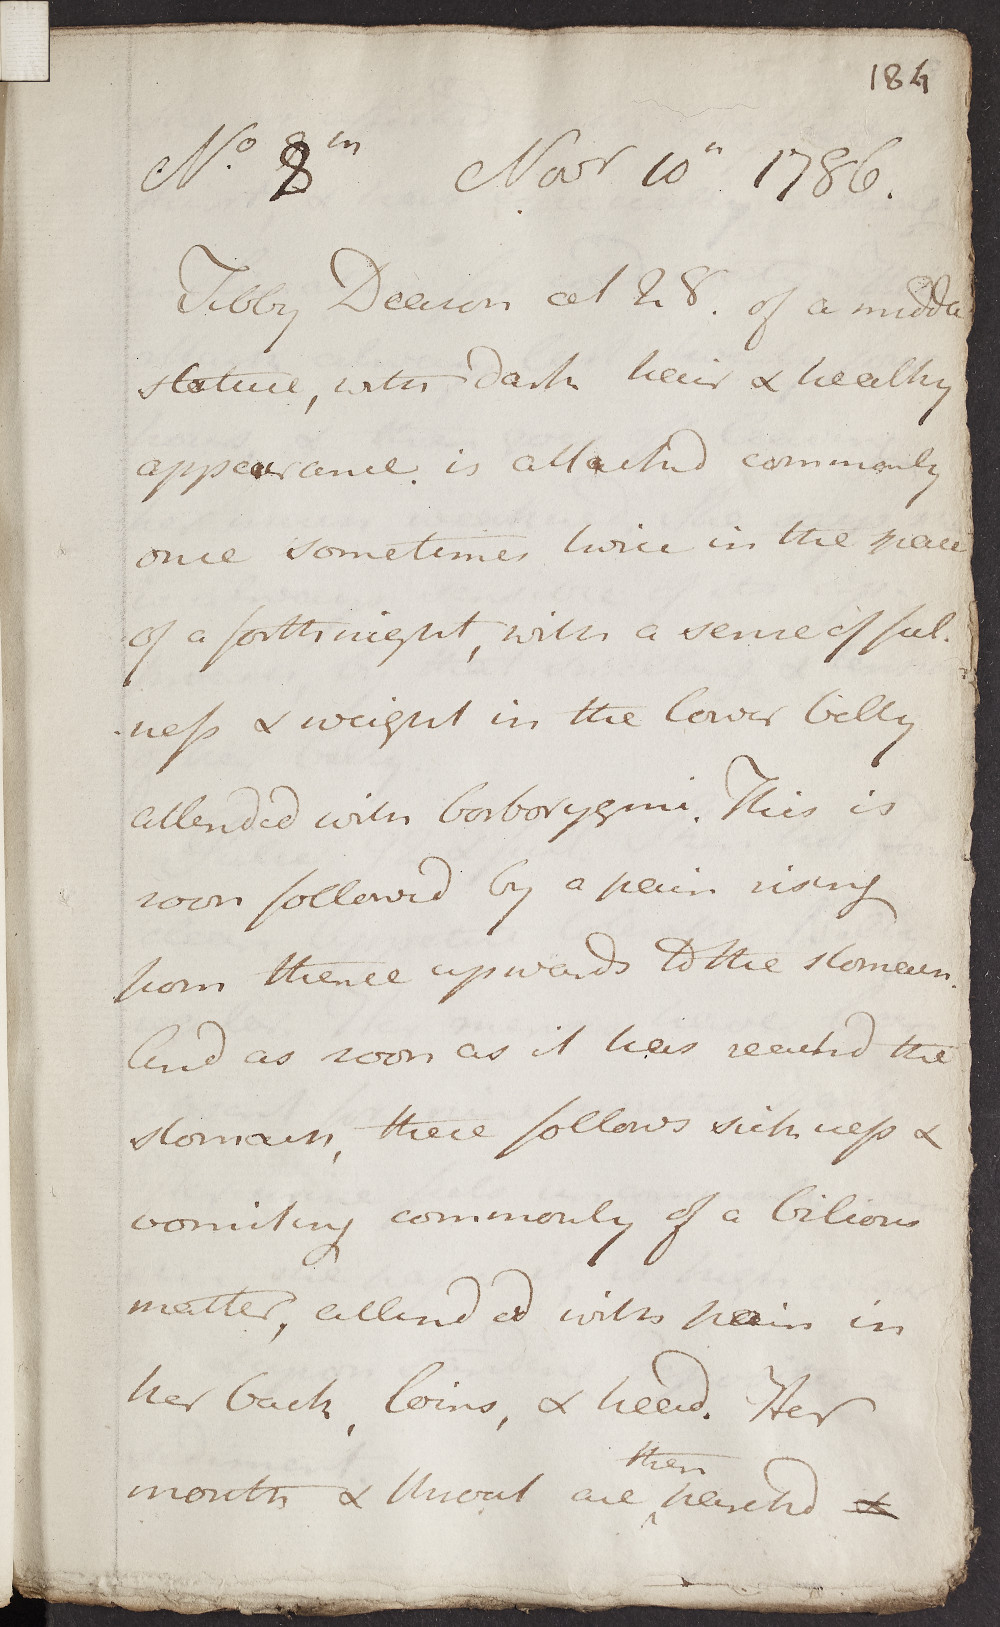 184
No. 8th Novr 10th 1786.
Tibby Deason aet 28. of a middle
stature, with dark hair & healthy
appearance. is attacked commonly
once sometimes twice in the space
of a forthnight, with a sense of ful-
ness & weight in the lower belly
attended with borborygmi. This is
soon followed by a pain rising
from thence upwards to the stomach.
And as soon as it has reached the
stomach, there follows sickness &
vomiting commonly of a bilious
matter, attended with pain in
her back, loins, & head. Her
then
mouth & throat are ^ parched &